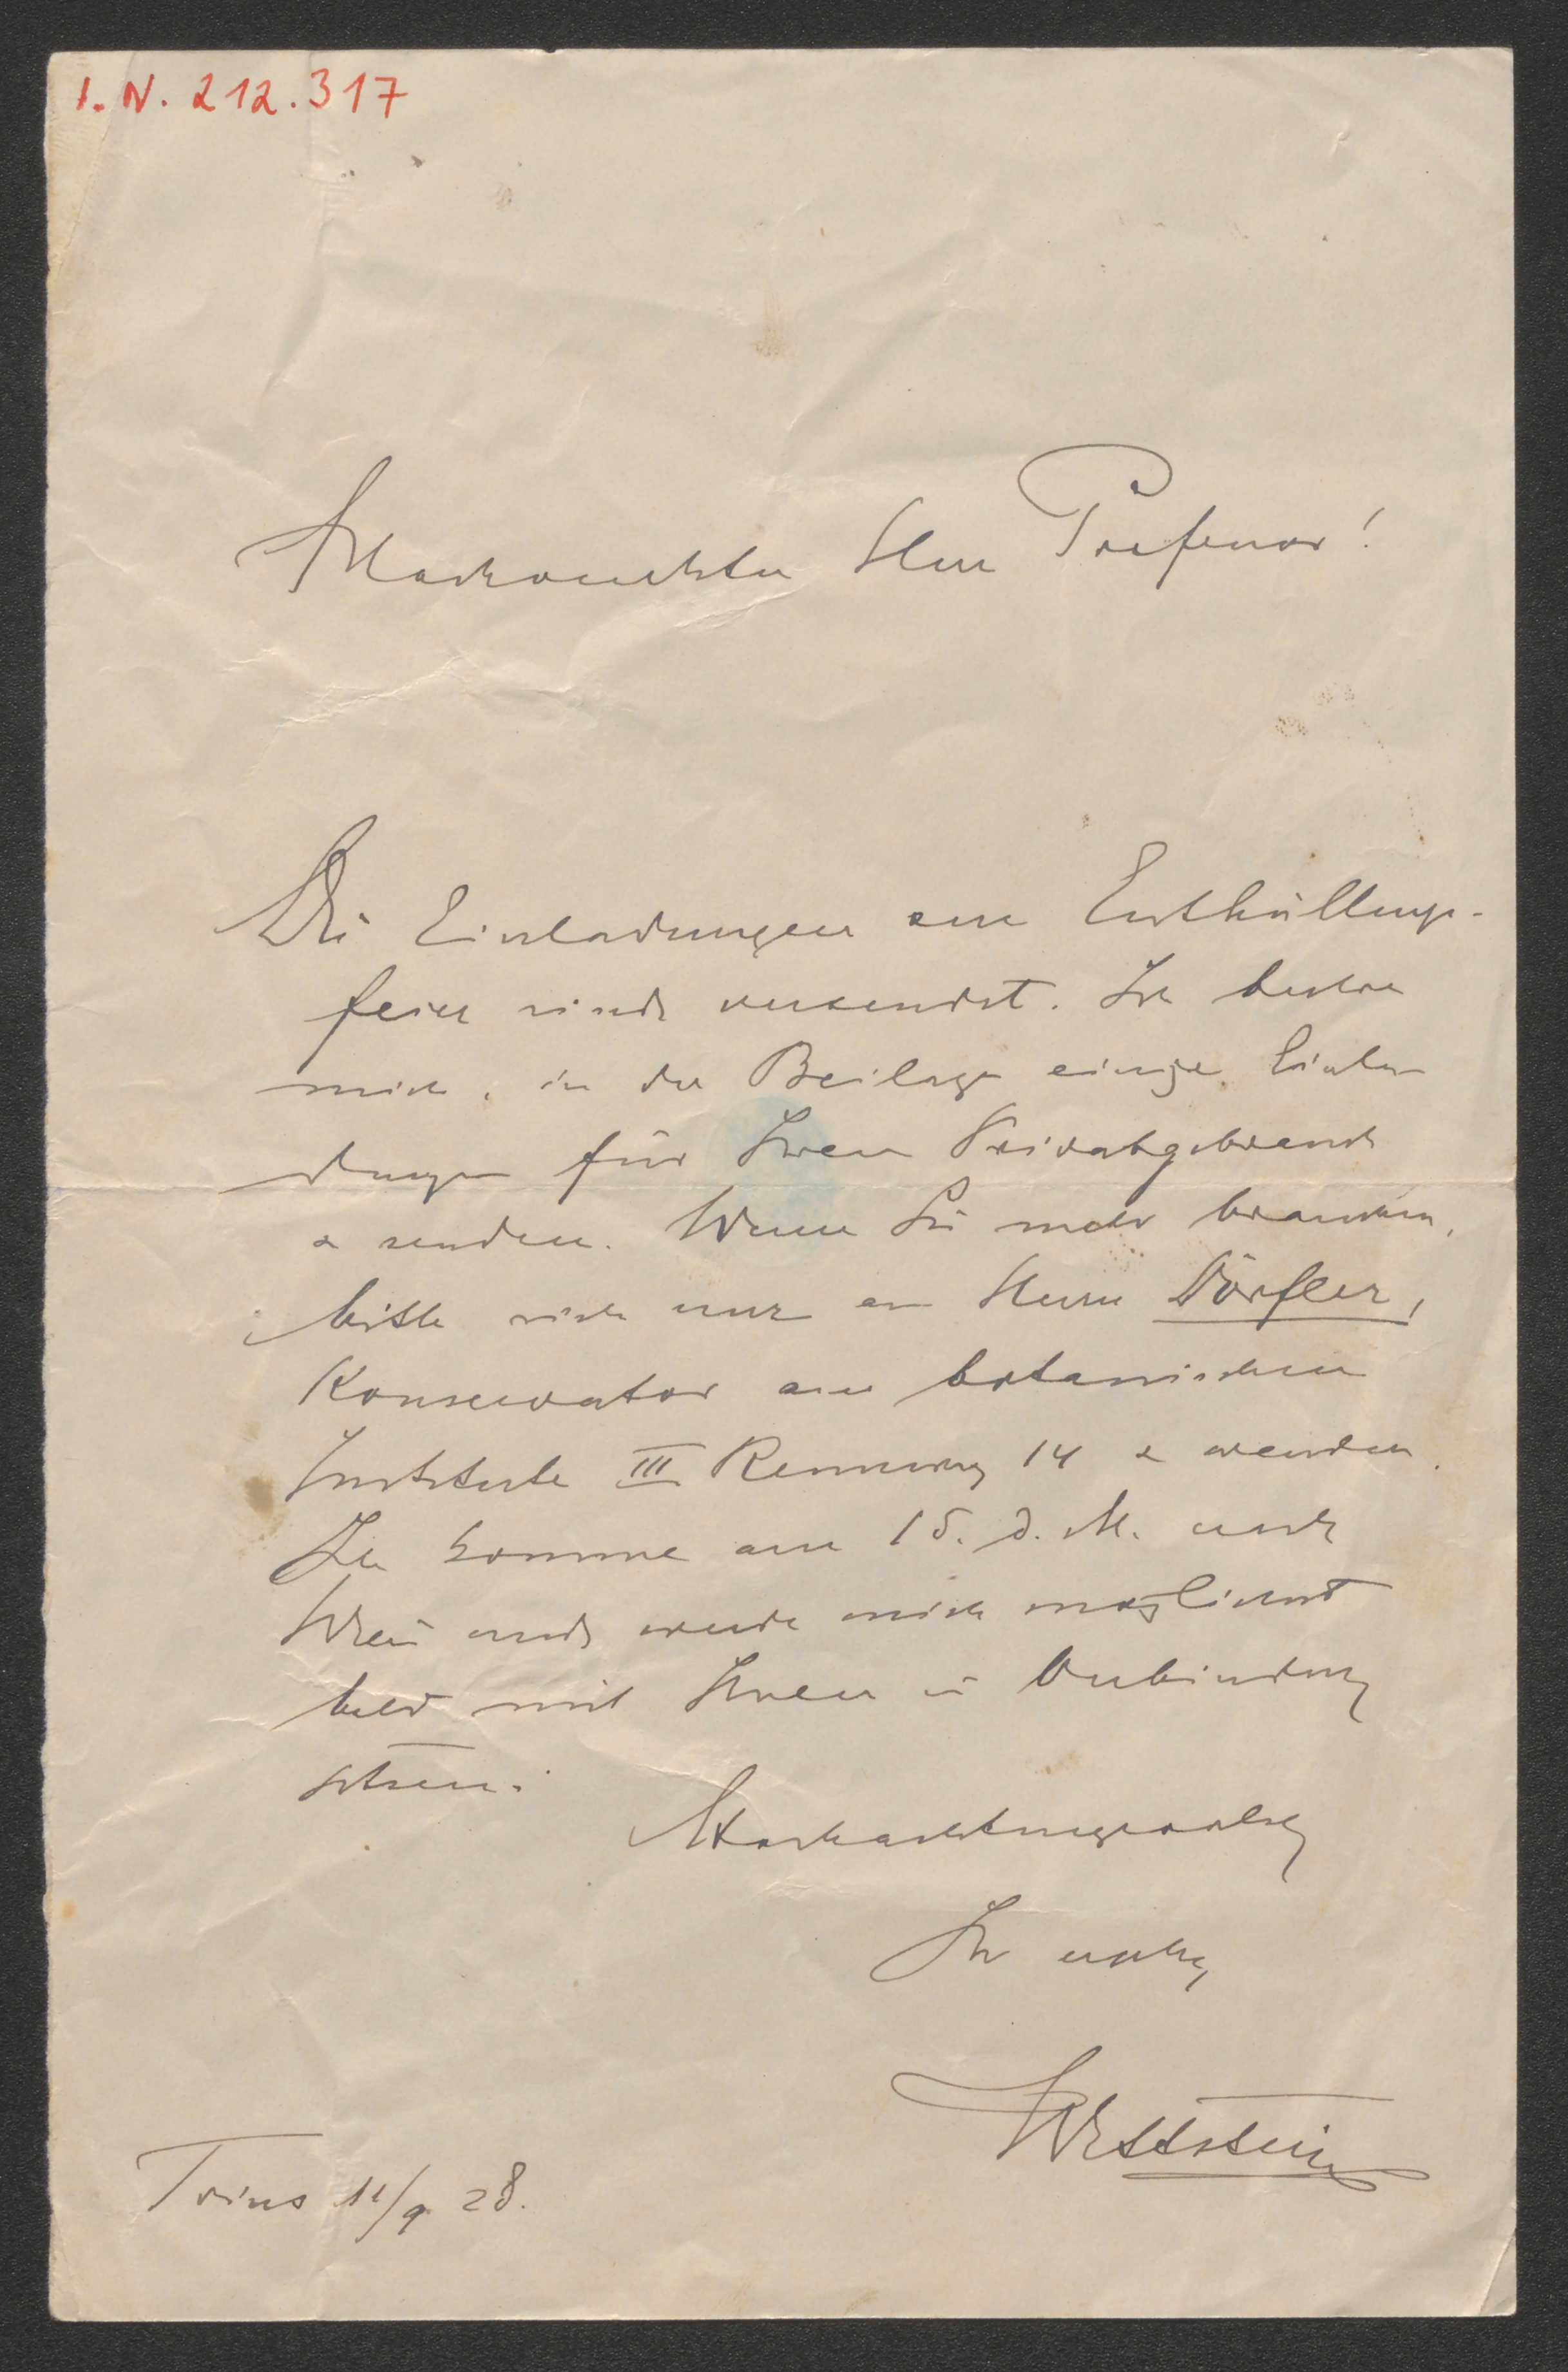 I. N. 212.317
Hochverehrter Herr Professor!
Die Einladungen zur Enthüllungs-
feier sind versendet. Ich beehre
mich, in der Beilage einige Einla-
dungen für Ihren Privatgebrauch
z senden. Wenn Sie mehr brauchen,
bitte sich nur an Herrn Dörfler,
Konservator am botanischen
Institute III Rennweg 14 z wenden.
Ich komme am 15. d. M. nach
Wien und werde mich möglichst
bald mit Ihnen in Verbindung
setzen.
Hochachtungsvollst
Ihr
Wettstein
Trins 11/9 28.